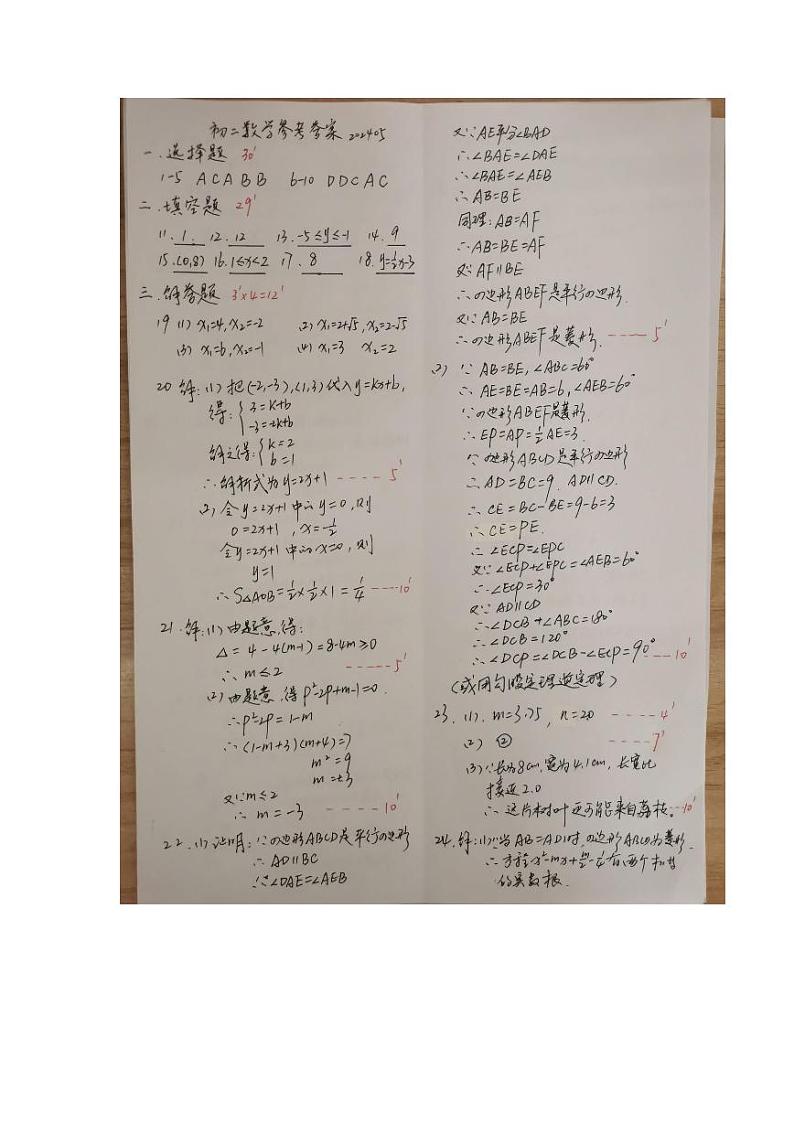 初二数学参考答案 202405
一.选择题 30'
1-5 ACABB 6-10 DDCAC
二.填空题 29'
11. 1 . 12. 12 13. -5≤y≤-1 14. 9
15.(0,8) 16. 1≤x<2 17. 8 18. y=½x-3
三.解答题 3'×4=12'
19 (1) x₁=4, x₂=-2 (2) x₁=2+√5, x₂=2-√5
(3) x₁=6, x₂=-1 (4) x₁=3 x₂=2
20 解:(1) 把(-2,-3),(1,3)代入y=kx+b,
得:{3=k+b
-3=-2k+b
解之得:{k=2
b=1
∴解析式为y=2x+1 ---- 5'
(2) 令y=2x+1中的y=0,则
0=2x+1 , x=-½
令y=2x+1中的x=0,则
y=1
∴S△AOB=½×½×1=¼ ---10'
21.解:(1) 由题意,得:
Δ=4-4(m-1)=8-4m≥0
∴m≤2 -----5'
(2) 由题意,得p²-2p+m-1=0.
∴p²-2p=1-m
∴(1-m+3)(m+4)=7
m²=9
m=±3
又∵m≤2
∴m=-3 ---- 10'
22.(1)证明:∵四边形ABCD是平行四边形
∴AD∥BC
∴∠DAE=∠AEB
又∵AE平分∠BAD
∴∠BAE=∠DAE
∴∠BAE=∠AEB
∴AB=BE
同理:AB=AF
∴AB=BE=AF
又∵AF∥BE
∴四边形ABEF是平行四边形.
又∵AB=BE
∴四边形ABEF是菱形. ---- 5'
(2) ∵AB=BE,∠ABC=60°
∴AE=BE=AB=6,∠AEB=60°
∵四边形ABEF是菱形.
∴EP=AP=½AE=3.
∵四边形ABCD是平行四边形
∴AD=BC=9. AD∥CD.
∴CE=BC-BE=9-6=3
∴CE=PE.
∴∠ECP=∠EPC
又∵∠ECP+∠EPC=∠AEB=60°
∴∠ECP=30°
又∵AD∥CD
∴∠DCB+∠ABC=180°
∴∠DCB=120°
∴∠DCP=∠DCB-∠ECP=90° --10'
(或用勾股定理逆定理)
23.(1). m=3.75, n=20 ---- 4'
(2) ② ---- 7'
(3)∵长为8cm,宽为4.1cm,长宽比
接近2.0
∴这片树叶更可能来自荔枝.--10'
24.解:(1)∵当AB=AD时,四边形ABCD为菱形.
∴方程x²-mx+m/2-¼=0有两个相等
的实数根.